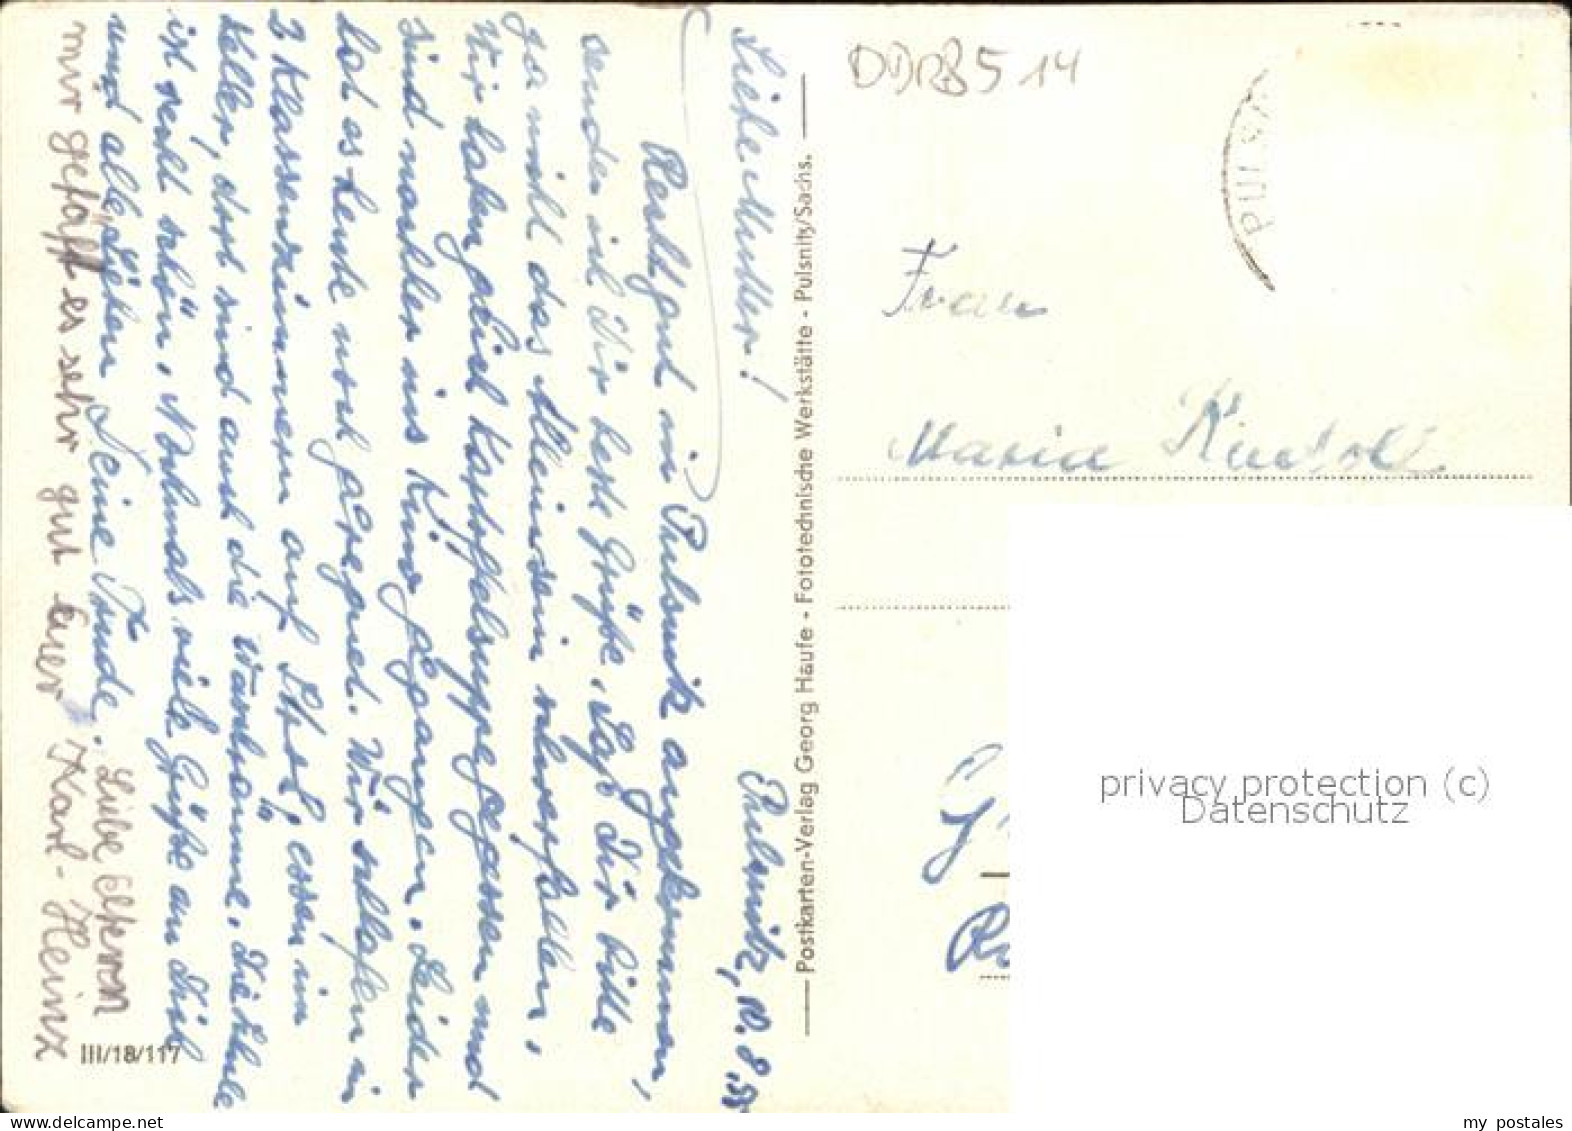 Pulsnitz, 10.8.58
Liebe Mutter!
Recht gut in Pulsnitz angekommen,
senden wir Dir beste Grüße. Laß Dir bitte
ja nicht das Alleinsein schwerfallen.
Wir haben gleich Kartoffelsuppe gegessen und
sind nachher ins Kino gegangen. Leider
hat es heute noch geregnet. Wir schlafen in
2 Klassenzimmern auf Stroh, essen im
Keller, dort sind auch die Waschräume. Die Schule
ist sehr schön. Nochmals viele Grüße an Dich
und alle Lieben Deine Trude.
Liebe Eltern
mir gefällt es sehr gut Euer Karl-Heinz
III/18/117
Postkarten-Verlag Georg Haufe - Fototechnische Werkstätte - Pulsnitz/Sachs.
DDR85 14
PULSN
Frau
Maria
privacy protection (c)
Datenschutz
my postales